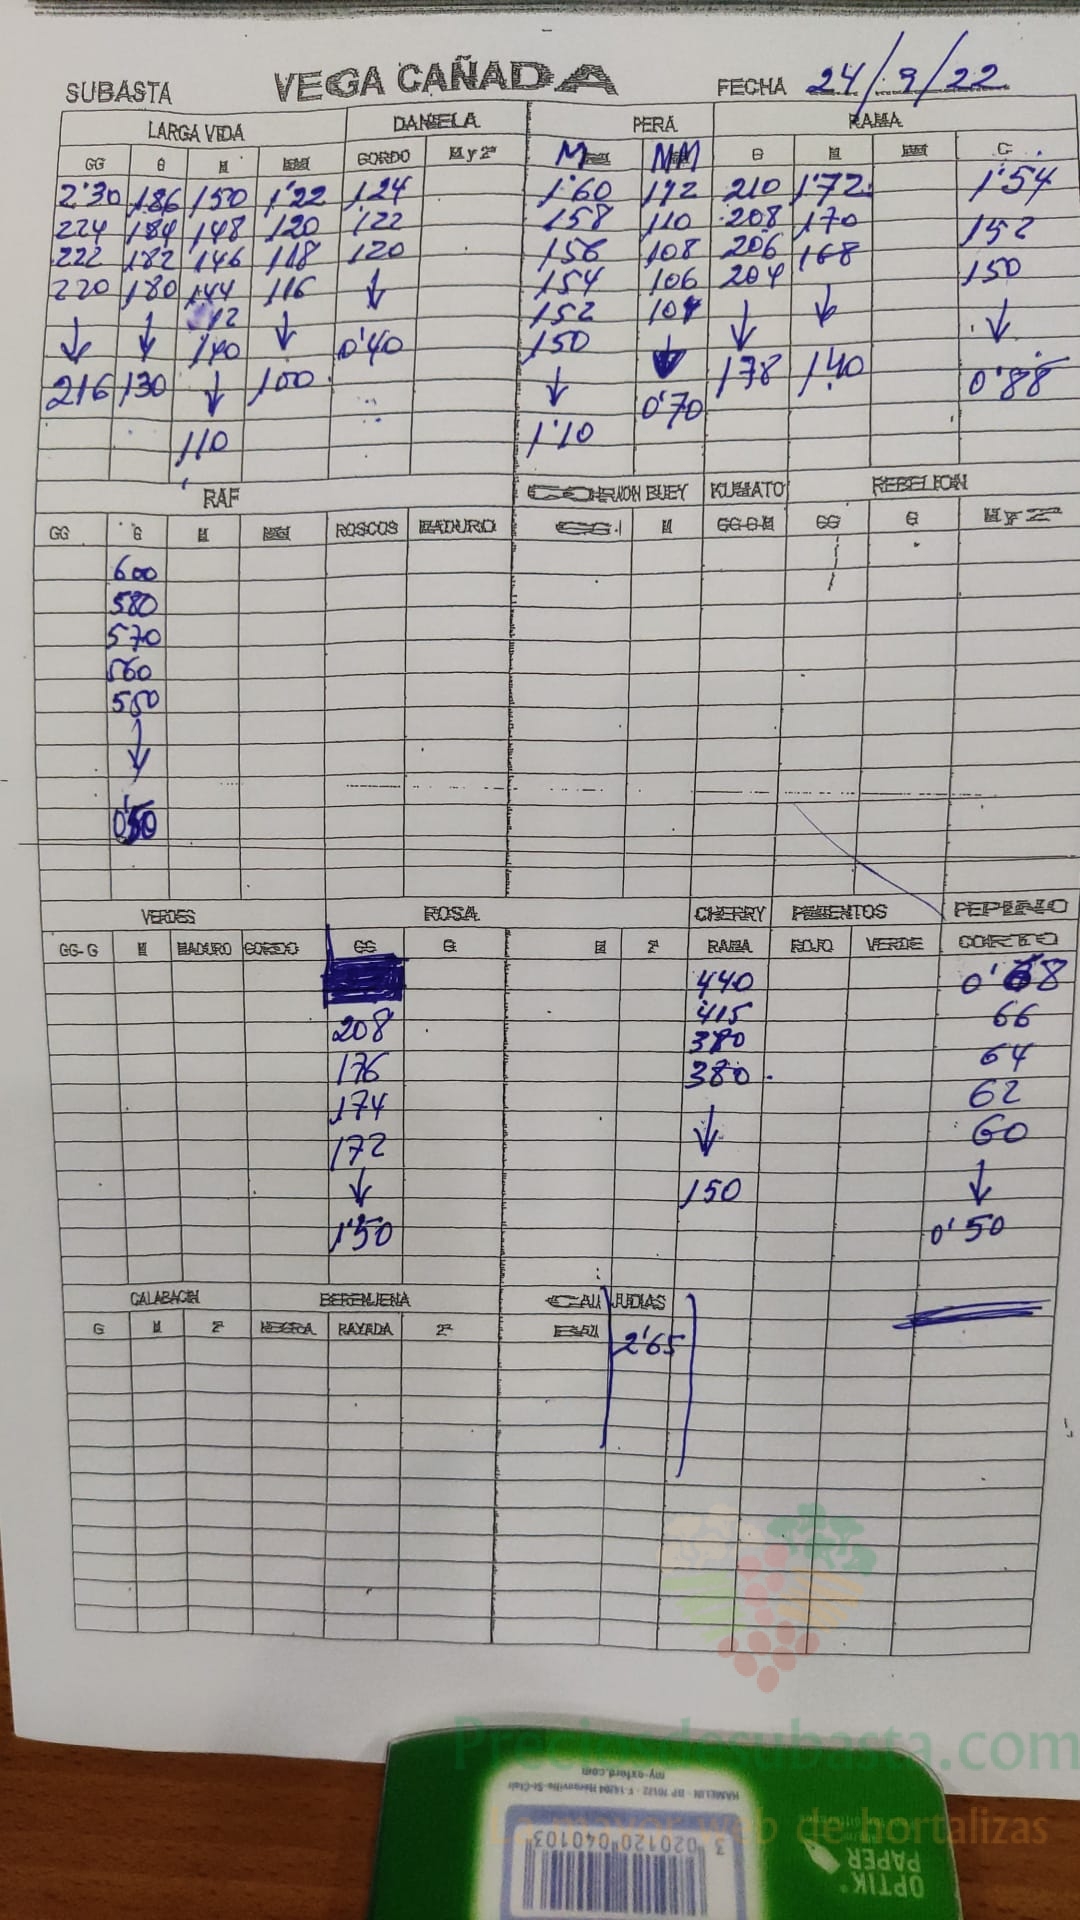 SUBASTA VEGA CAÑADA FECHA 24/9/22
LARGA VIDA DANIELA PERA RAMA
GG G M MM GORDO M y 2ª M MM G M MM C
2'30 186 150 1'22 124 1'60 112 210 1'72 1'54
224 184 148 120 122 158 110 208 170 152
222 182 146 118 120 156 108 206 168 150
220 180 144 116 ↓ 154 106 204 ↓ ↓
↓ ↓ ↓ 0'40 152 104 ↓
140 150 ↓ 178 140 0'88
216 130 ↓ 100 ↓ 0'70
110 1'10
RAF CORAZON BUEY KUMATO REBELION
GG G M MM ROSCOS MADURO GG M GG-G-M GG G M y 2ª
600
580
570
560
550
↓
VERDES ROSA CHERRY PIMIENTOS PEPINO
GG-G M MADURO GORDO GG G M 2ª RAMA ROJO VERDE CORTO
440 0'68
208 415 66
176 64
174 380 62
172 ↓ 60
↓ 150 ↓
1'50 0'50
CALABACIN BERENJENA JUDIAS
G M 2ª NEGRA RAYADA 2ª
2'65
Preciosdesubasta.com
La mayor web de hortalizas
HAMELIN - BP 70122 - F-14204 Hérouville-St-Clair
my-oxford.com
3 020120 040103
OPTIK
PAPER